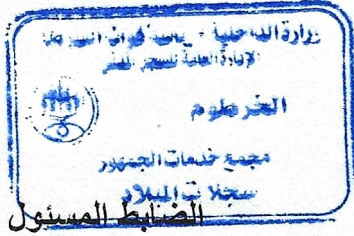 وزارة الداخلية - رئاسة قوات الشرطة
الإدارة العامة للسجل المدني
الخرطوم
مجمع خدمات الجمهور
سجلات الميلاد
الضابط المسئول